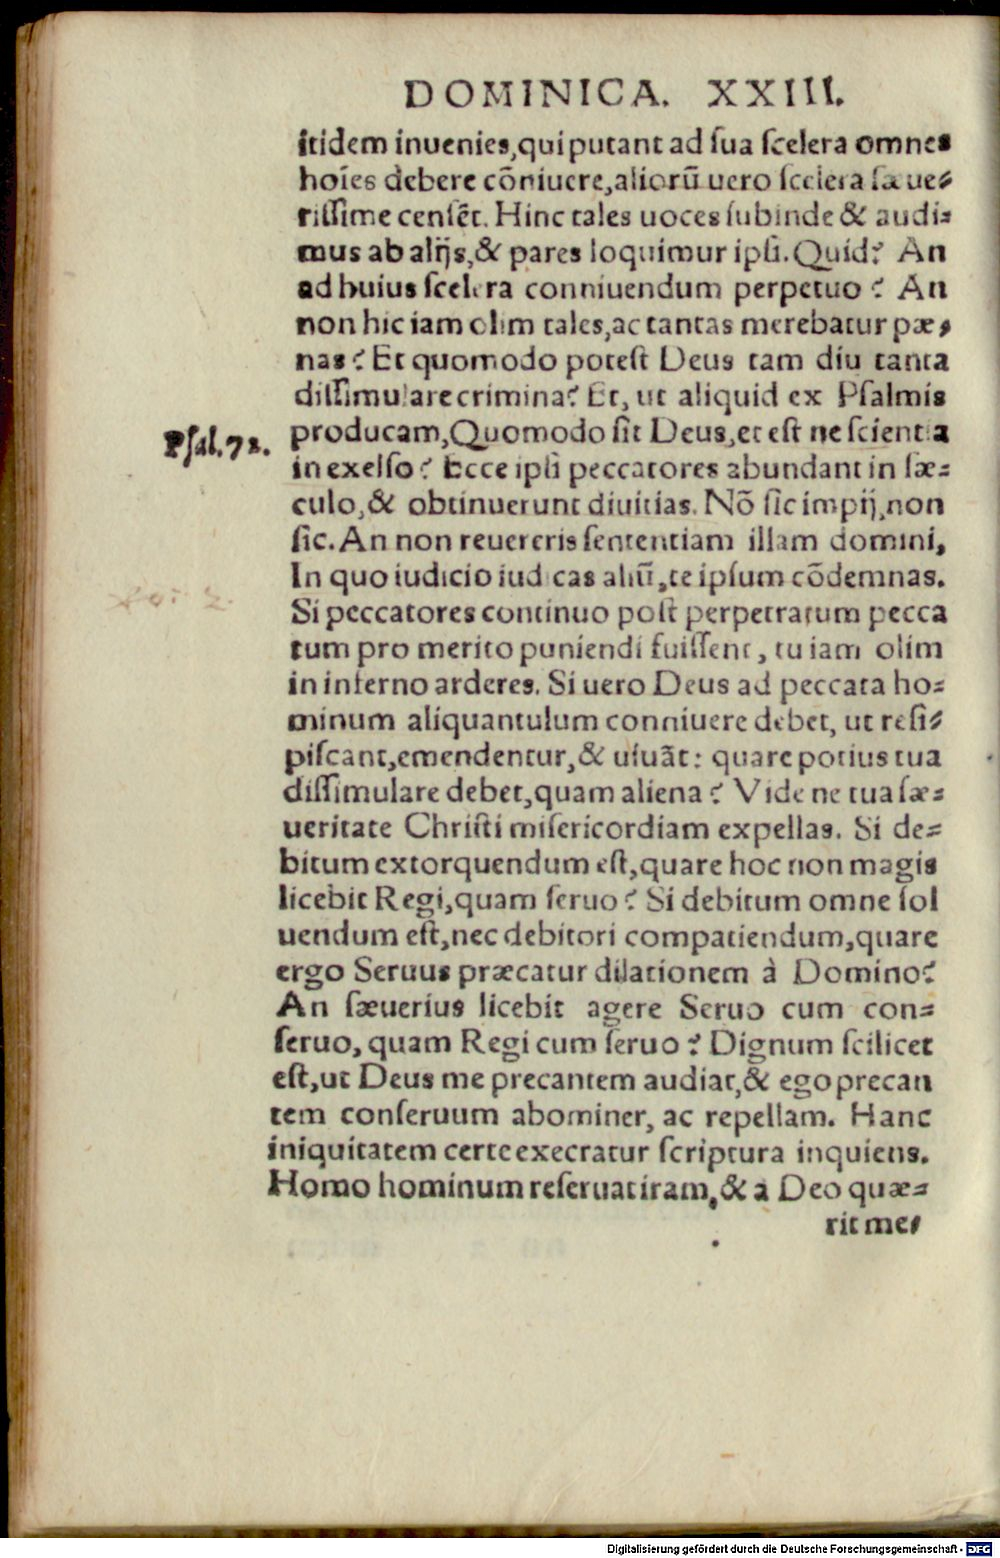 DOMINICA. XXIII.
itidem inuenies, qui putant ad sua scelera omnes
hoīes debere cōniuere, aliorū uero scelera sæue⸗
rissime censēt. Hinc tales uoces subinde & audi⸗
mus ab alijs, & pares loquimur ipsi. Quid? An
ad huius scelera conniuendum perpetuo? An
non hic iam olim tales, ac tantas merebatur pæ⸗
nas? Et quomodo potest Deus tam diu tanta
dissimulare crimina? Et, ut aliquid ex Psalmis
Psal. 72.
producam, Quomodo sit Deus, et est ne scientia
in exelso? Ecce ipsi peccatores abundant in sæ⸗
culo, & obtinuerunt diuitias. Nō sic impij, non
sic. An non reuereris sententiam illam domini,
In quo iudicio iudicas aliū, te ipsum cōdemnas.
Si peccatores continuo post perpetratum pecca
tum pro merito puniendi fuissent, tu iam olim
in inferno arderes. Si uero Deus ad peccata ho⸗
minum aliquantulum conniuere debet, ut resi⸗
piscant, emendentur, & uiuāt: quare potius tua
dissimulare debet, quam aliena? Vide ne tua sæ⸗
ueritate Christi misericordiam expellas. Si de⸗
bitum extorquendum est, quare hoc non magis
licebit Regi, quam seruo? Si debitum omne sol
uendum est, nec debitori compatiendum, quare
ergo Seruus præcatur dilationem à Domino?
An sæuerius licebit agere Seruo cum con⸗
seruo, quam Regi cum seruo? Dignum scilicet
est, ut Deus me precantem audiat, & ego precan
tem conseruum abominer, ac repellam. Hanc
iniquitatem certe execratur scriptura inquiens.
Homo hominum reseruat iram, & a Deo quæ⸗
rit me⸗
Digitalisierung gefördert durch die Deutsche Forschungsgemeinschaft - DFG